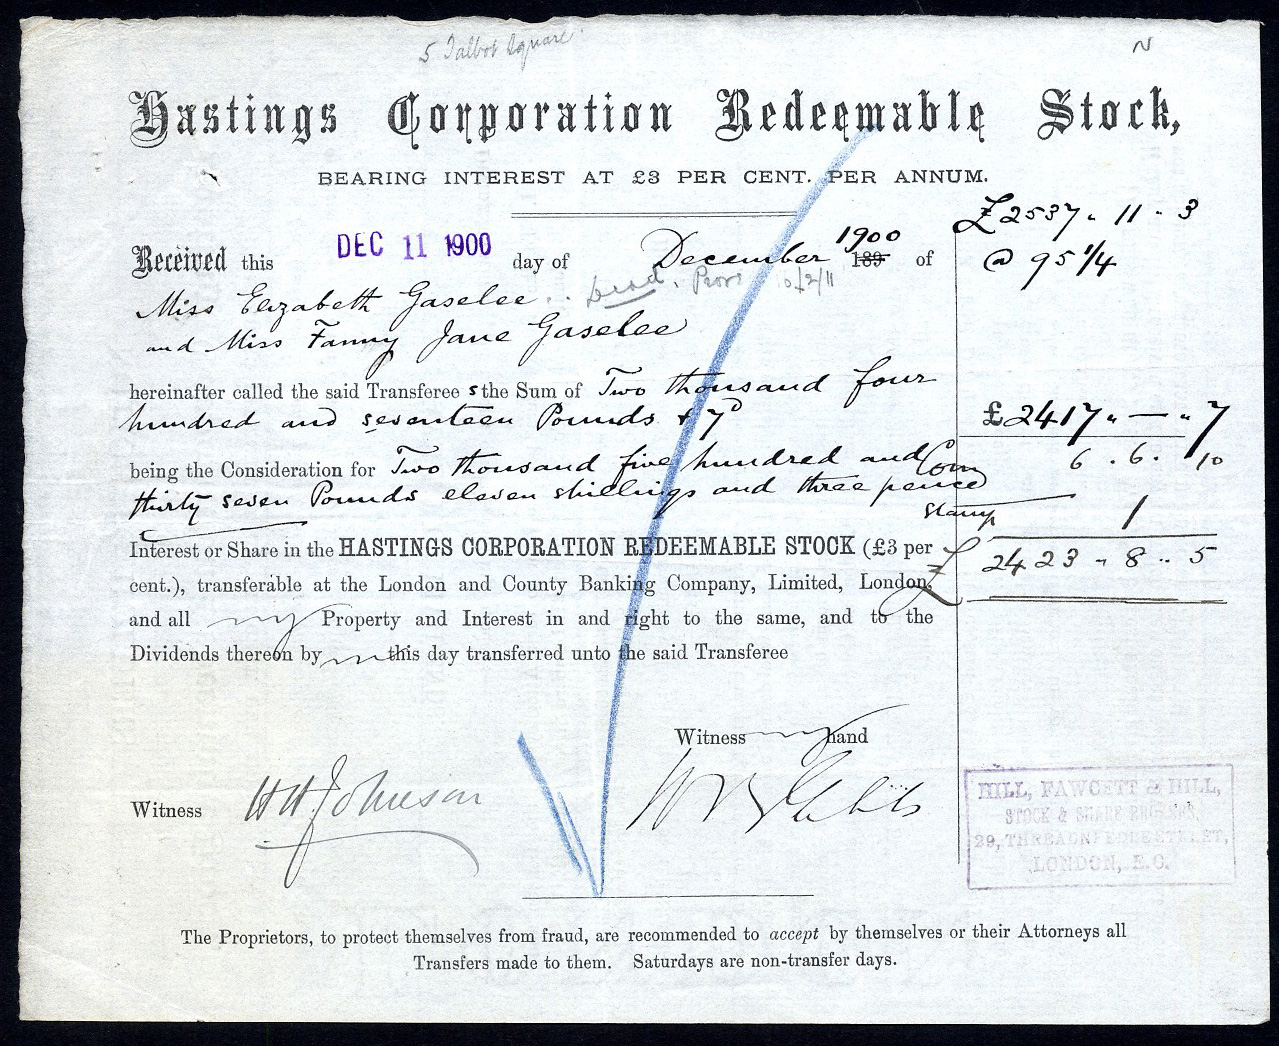 5 Talbot Square
N
Hastings Corporation Redeemable Stock,
BEARING INTEREST AT £3 PER CENT. PER ANNUM.
£2537 " 11 " 3
@ 95 1/4
Received this DEC 11 1900 day of December 1900 189 of
Miss Elizabeth Gaselee
and Miss Fanny Jane Gaselee
hereinafter called the said Transferee s the Sum of Two thousand four
hundred and seventeen Pounds & 7d
£2417 " — " 7
being the Consideration for Two thousand five hundred and
Com 6 . 6 . 10
thirty seven Pounds eleven shillings and three pence
Stamp 1
Interest or Share in the HASTINGS CORPORATION REDEEMABLE STOCK (£3 per
£ 2423 " 8 " 5
cent.), transferable at the London and County Banking Company, Limited, London,
and all my Property and Interest in and right to the same, and to the
Dividends thereon by me this day transferred unto the said Transferee
Witness my hand
Witness H H Johnson
HILL, FAWCETT & HILL,
STOCK & SHARE BROKERS,
29, THREADNEEDLE STREET,
LONDON, E.C.
The Proprietors, to protect themselves from fraud, are recommended to accept by themselves or their Attorneys all
Transfers made to them. Saturdays are non-transfer days.